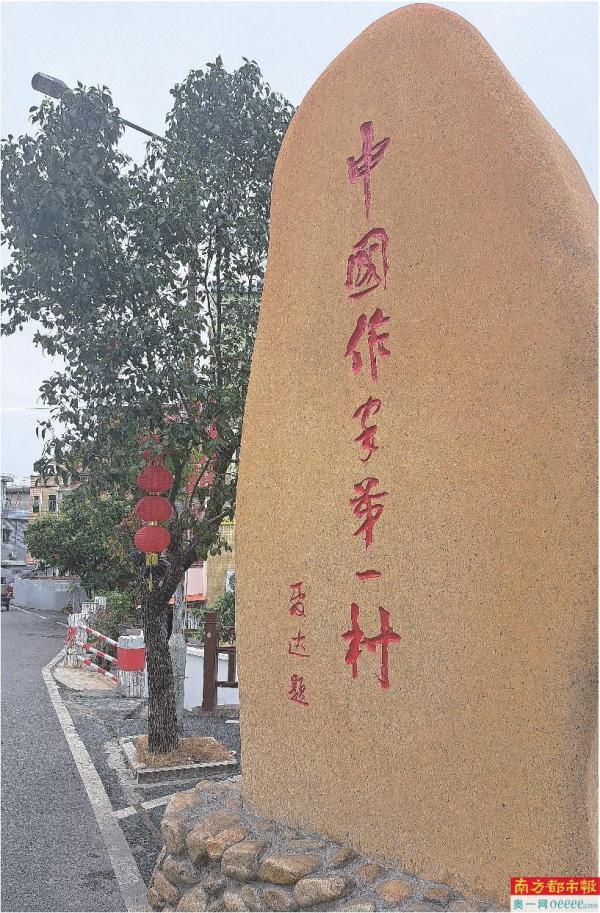 中國作家第一村
达题
南方都市報
奥一网 oeeee.com